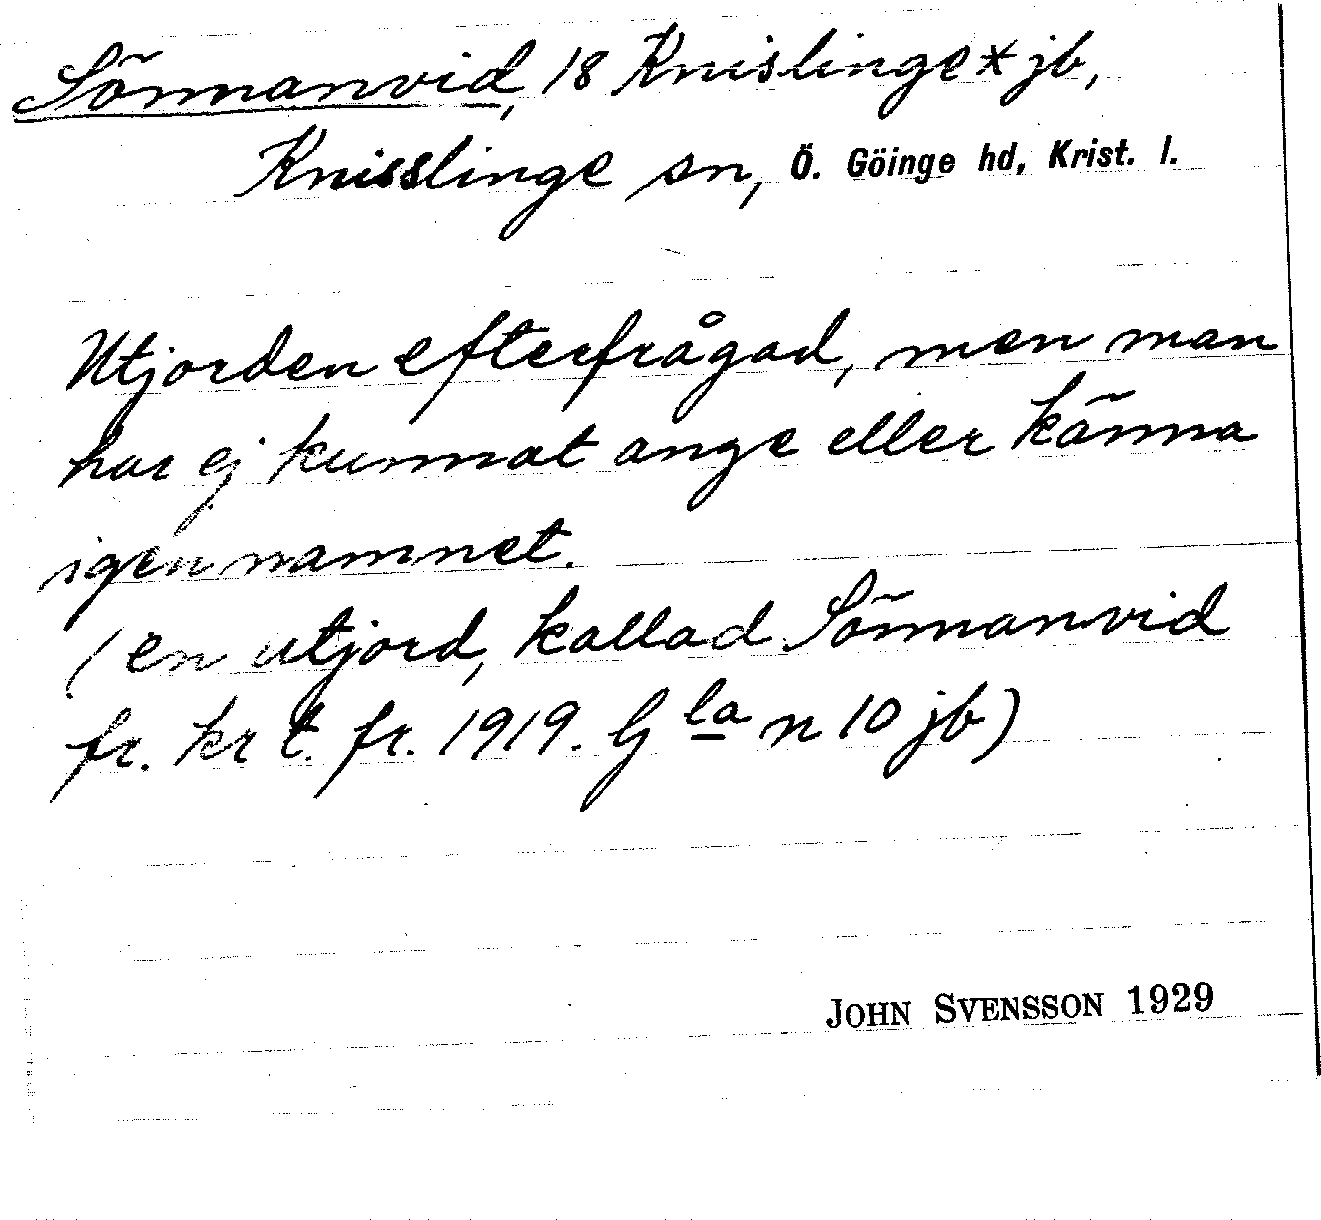 Sönnanvid, 18 Knislinge * jb,
Knisslinge sn, Ö. Göinge hd, Krist. l.
Utjorden efterfrågad, men man
har ej kunnat ange eller känna
igen namnet.
(en utjord, kallad Sönnanvid
fr. kr t. fr. 1919. G la n 10 jb)
JOHN SVENSSON 1929